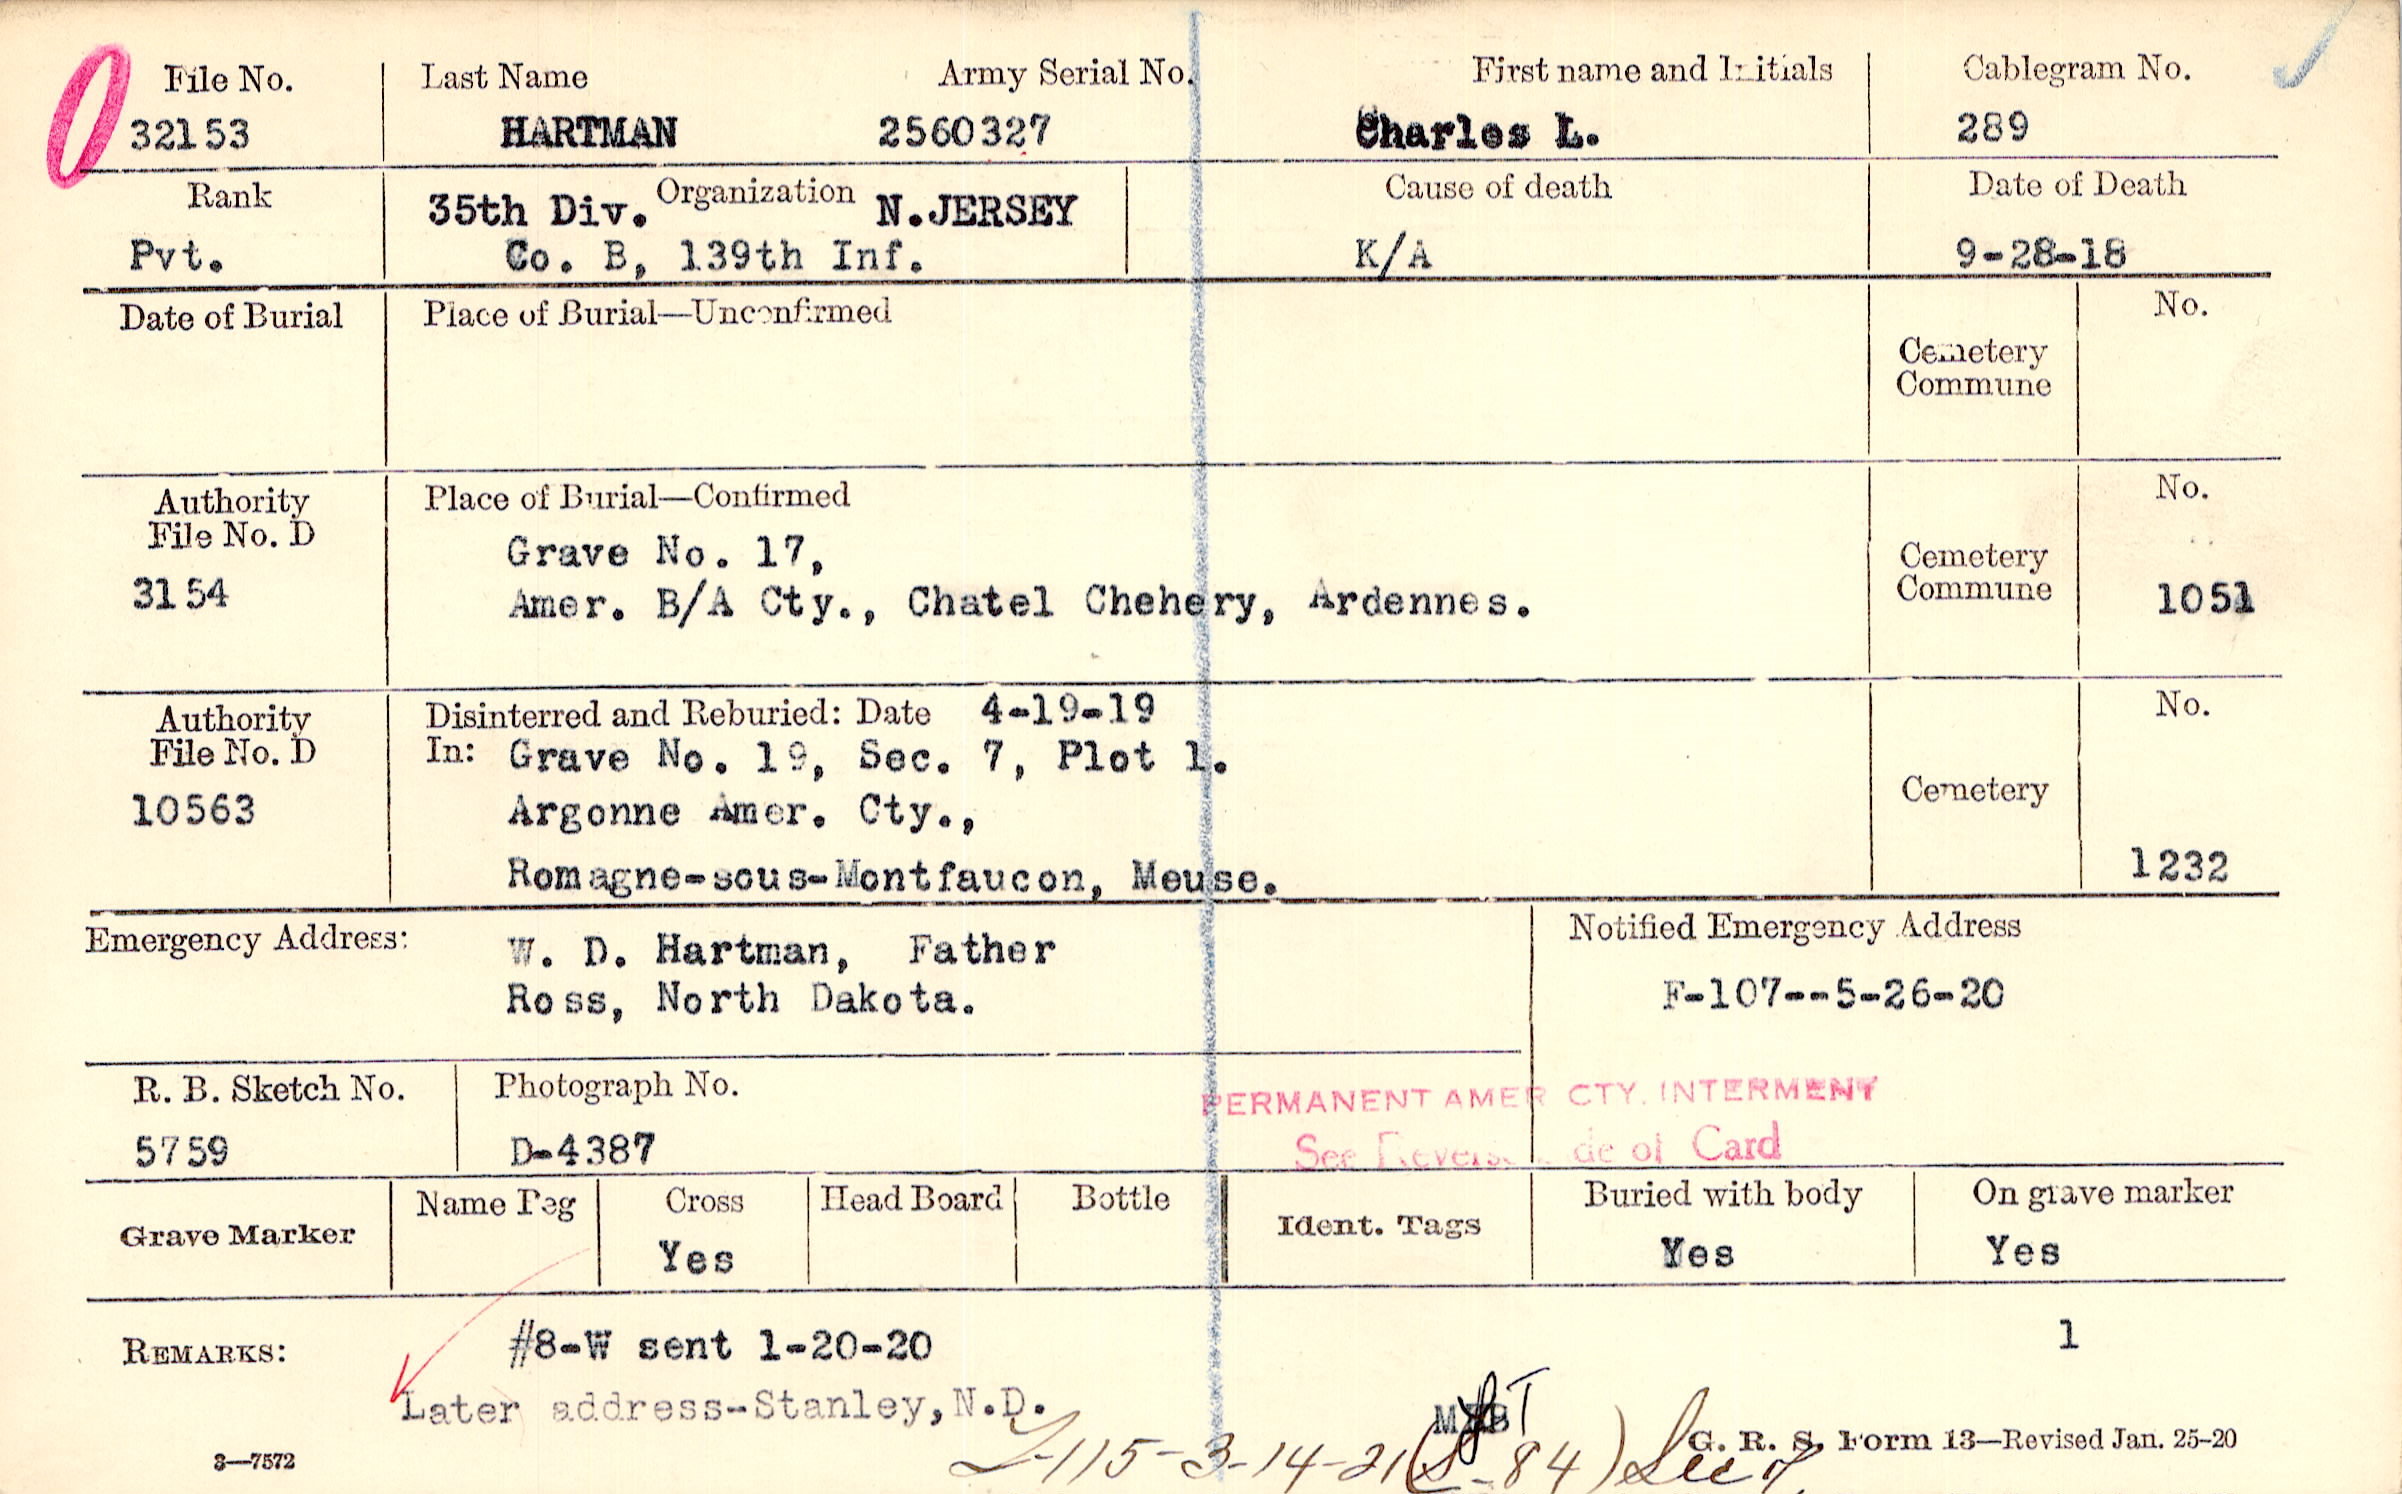 File No. Last Name Army Serial No. First name and Initials Cablegram No.
32153 HARTMAN 2560327 Charles L. 289
Rank Organization Cause of death Date of Death
35th Div. N.JERSEY
Pvt. Co. B, 139th Inf. K/A 9-28-18
Date of Burial Place of Burial—Unconfirmed No.
Cemetery
Commune
Authority Place of Burial—Confirmed No.
File No. D
Grave No. 17,
Cemetery
3154 Amer. B/A Cty., Chatel Chehery, Ardennes. Commune 1051
Authority Disinterred and Reburied: Date 4-19-19 No.
File No. D In: Grave No. 19, Sec. 7, Plot 1.
Cemetery
10563 Argonne Amer. Cty.,
Romagne-sous-Montfaucon, Meuse. 1232
Emergency Address: W. D. Hartman, Father Notified Emergency Address
Ross, North Dakota. F-107--5-26-20
R. B. Sketch No. Photograph No.
PERMANENT AMER CTY. INTERMENT
5759 D-4387 See Reverse de of Card
Grave Marker Name Peg Cross Head Board Bottle Ident. Tags Buried with body On grave marker
Yes Yes Yes
REMARKS: #8-W sent 1-20-20 1
Later address-Stanley, N.D.
G. R. S. Form 13—Revised Jan. 25-20
3—7572
-115-3-14-21 -84)